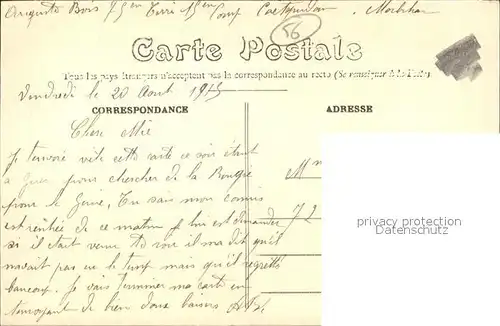 Auguste Bois 75em Terri 15em Comp Coetquidan. Morbihan
56
Carte Postale
Tous les pays étrangers n'acceptent pas la correspondance au recto (Se renseigner à la Poste)
Vendredi le 20 Aout 1915
CORRESPONDANCE
ADRESSE
Chere Mie
Je tenvoie vite cette carte ce soir étant
a Guer pour chercher de la Bougie
pour le Genie, Tu sais mon commis
est rentrée de ce matin je lui est demander
si il était venu te voir il ma dit qu'il
navait pas eu le temp mais qu'il regretté
baucoup. Je vais termmer ma carte en
tenvoyant de bien doux baisers
M
72
privacy protection
Datenschutz